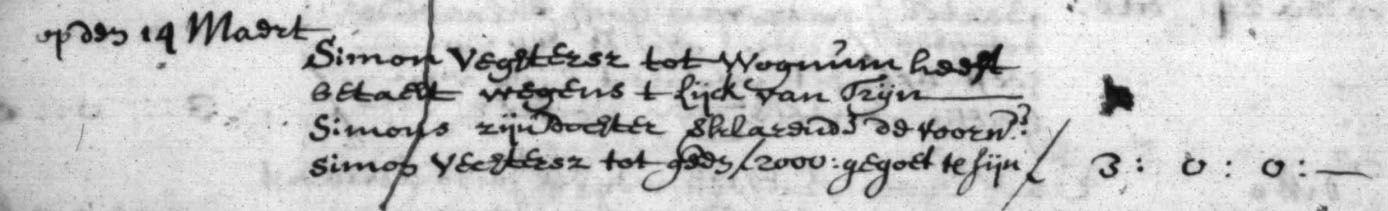 opden 14 Maert
Simon Veghtersz tot Wognum heeft
betaelt wegens t lijck van Trijn
Simons zijn dochter verklarende de voorn:
Simon Vechtersz tot geen 2000: gegoet te sijn 3: 0: 0:—